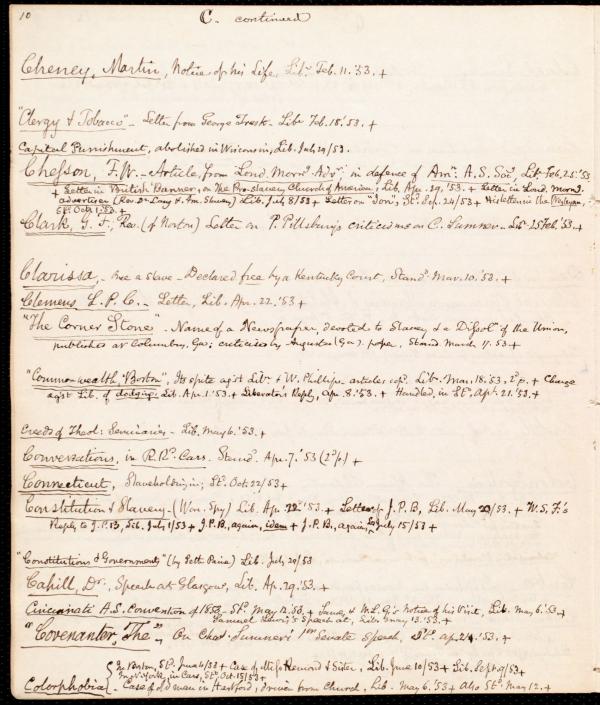 10
C. continued
Cheney, Martin, Notice of his Life, Lib. Feb. 11. '53. +
"Clergy & Tobacco" - Letter from George Trask - Libr Feb. 18. '53. +
Capital Punishment, abolished in Wisconsin, Lib. July 29/53.
Chesson, F. W. - Article, from Lond. Morng. Advr.; in defence of Amn. A. S. Socy, Libr Feb. 25. '53
+ Letter in British Banner, on The Pro-slavery Church of America, Lib. Apr. 29. '53. + Letter in Lond. morng.
advertiser (Rev. Dr. & Am. Slavery) Lib. July 8/53 + Letter on "Ion", St. Sep. 24/53 + His letter in the Wesleyan,
St. Oct. 1. 53. +
Clark, G. F., Rev. (of Norton) Letter on P. Pillsbury's criticisms on C. Sumner - Libr 25 Feb. '53. +
Clarissa, - a slave - Declared free by a Kentucky Court, Standd. Mar. 10. '53. +
Clemens L. P. C. - Letter, Lib. Apr. 22. '53 +
"The Corner Stone" - Name of a Newspaper, devoted to Slavery & a Dissoln. of the Union,
publishes at Columbus, Ga; criticised by Augusta (Ga.) paper, Stand March 17. 53 +
"Commonwealth, Boston", Its spite agst Libr & W. Phillips - articles copd. Libr. Mar. 18. '53, 2d p. + Charge
agst Lib. of dodging; Lib. Apr. 1. '53 + Liberator's Reply, apr. 8. '53. + Handled, in St. Apr. 21. '53 +
Creeds of Theol: Seminaries - Lib. May 6. '53. +
Conversations, in R. Rd. Cars. Standd. Apr. 7. '53 (2d p.) +
Connecticut, Slaveholding in; St. Oct. 22/53 +
Constitution & Slavery - (Wor. Spy) Lib. Apr. 22. '53 + Letter of J. P. B, Lib. May 20/53. + W. S. F.'s
Reply to J. P. B, Lib. July 1/53 + J. P. B., again, idem + J. P. B., again, Lib July 15/53 +
"Constitution & Governments" (by Seth Paine) Lib. July 29/53
Cahill, Dr., Speech at Glasgow, Lib. Apr. 29. '53. +
Cincinnati A. S. Convention of 1853 - St. May 12. 53. + & W. L. G's notice of his Visit, Lib. May 6. '53 +
Samuel Lewis's Speech at, Lib. May 13. '53. +
"Covenanter, The", On Chas. Sumner's 1st Senate Speech, St. ap. 21. '53. +
In Boston, St. June 4/53 + Case of Miss Remond & Sister, Lib. June 10/53 + Lib. Sept. 9/53 +
In New York, in Cars, St. Oct. 15/53 +
Colorphobia - Case of old man in Hartford, driven from Church, Lib. May 6. '53 + Also St. May 12. +